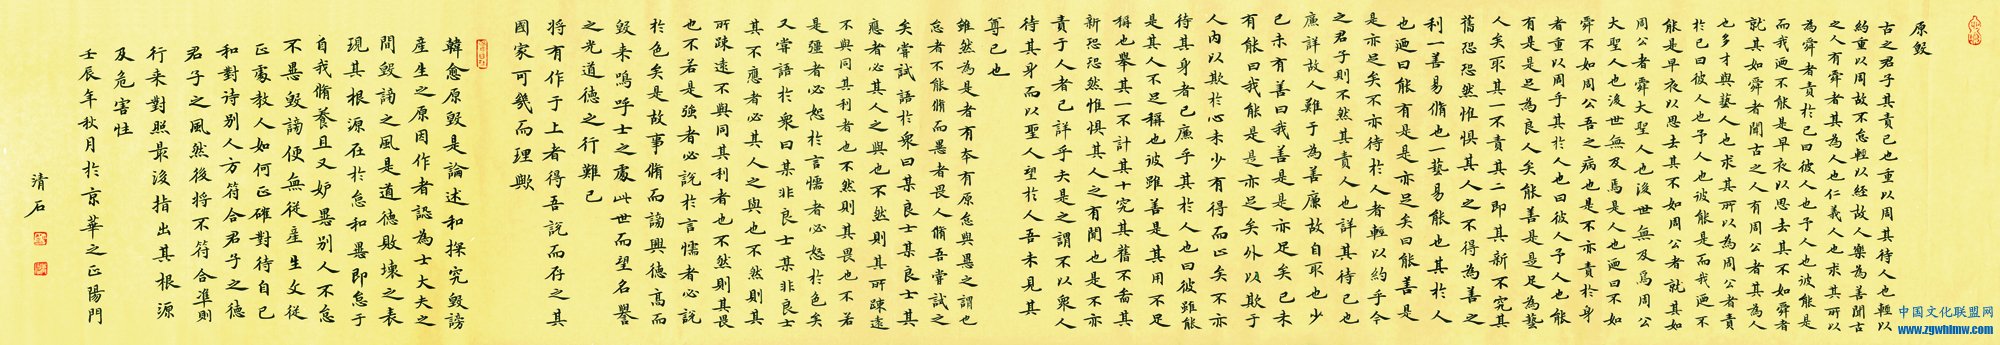 原毀
古之君子其責己也重以周其待人也輕以
約重以周故不怠輕以約故人樂為善聞古
之人有舜者其為人也仁義人也求其所以
為舜者責於己曰彼人也予人也彼能是
而我迺不能是早夜以思去其不如舜者
就其如舜者聞古之人有周公者其為人
也多才與藝人也求其所以為周公者責
於己曰彼人也予人也彼能是而我迺不
能是早夜以思去其不如周公者就其如
周公者舜大聖人也後世無及焉周公
大聖人也後世無及焉是人也迺曰不如
舜不如周公吾之病也是不亦責於身
者重以周乎其於人也曰彼人予人也能
有是是足為良人矣能善是是足為藝
人矣取其一不責其二即其新不究其
舊恐恐然惟懼其人之不得為善之
利一善易脩也一藝易能也其於人
也迺曰能有是是亦足矣曰能善是
是亦足矣不亦待於人者輕以約乎今
之君子則不然其責人也詳其待己也
廉詳故人難于為善廉故自取也少
己未有善曰我善是是亦足矣己未
有能曰我能是是亦足矣外以欺于
人內以欺於心未少有得而止矣不亦
待其身者已廉乎其於人也曰彼雖能
是其人不足稱也彼雖善是其用不足
稱也舉其一不計其十究其舊不啚其
新恐恐然惟懼其人之有聞也是不亦
責于人者已詳乎夫是之謂不以衆人
待其身而以聖人望於人吾未見其
尊己也
雖然為是者有本有原怠與忌之謂也
怠者不能脩而忌者畏人脩吾嘗試之
矣嘗試語於衆曰某良士某良士其
應者必其人之與也不然則其所疎遠
不與同其利者也不然則其畏也不若
是彊者必怒於言懦者必怒於色矣
又嘗語於衆曰某非良士某非良士
其不應者必其人之與也不然則其
所疎遠不與同其利者也不然則其畏
也不若是強者必說於言懦者必說
於色矣是故事脩而謗興德高而
毀来嗚呼士之處此世而望名譽
之光道德之行難已
将有作于上者得吾說而存之其
國家可幾而理歟
韓愈原毀是論述和探究毀謗
產生之原因作者認為士大夫之
間毀謗之風是道德敗壞之表
現其根源在於怠和忌即怠于
自我脩養且又妒忌别人不怠
不忌毀謗便無從產生文從
正處教人如何正確對待自己
和對待别人方符合君子之德
君子之風然後将不符合準則
行来對照最後指出其根源
及危害性
壬辰年秋月於京華之正陽門
清石
中国文化联盟网
www.zgwhlmw.com